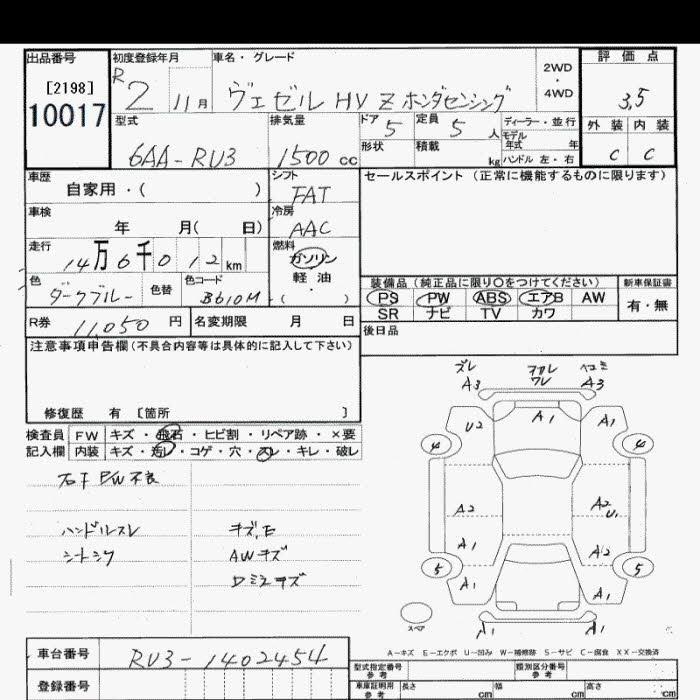 出品番号 初度登録年月 車名・グレード 2WD・4WD 評価点
[2198] R 2 11月 ヴェゼル HV Z ホンダセンシング 3,5
10017
型式 排気量 ドア 5 定員 5 人 ディーラー・並行 外装 内装
6AA-RU3 1500 cc 形状 積載 kg モデル年式 年 C C
ハンドル 左・右
車歴 シフト セールスポイント(正常に機能するものに限ります)
自家用・( ) FAT
車検 冷房
年 月( 日) AAC
走行 燃料
14万6千012km ガソリン
軽油
・( )
色 色替 色コード
ダークブルー B610M
装備品(純正品に限り○をつけてください) 新車保証書
PS PW ABS エアB AW 有・無
SR ナビ TV カワ
R券 11,050 円 名変期限 月 日
後日品
注意事項申告欄(不具合内容等は具体的に記入して下さい)
修復歴 有 [箇所 ]
検査員 FW キズ・飛石・ヒビ割・リペア跡・×要
記入欄 内装 キズ・汚レ・コゲ・穴・スレ・キレ・破レ
P/W不良
ハンドルスレ キズ,E
AWキズ
ズレ
A3 A3
U2 A1 A1
4 4
A2 A2 U1
A1 A2
5 5
A1 A1
スペア
A1 A1
A-キズ E-エクボ U-凹み W-補修跡 S-サビ C-腐食 XX-交換済
車台番号 RU3-1402454
登録番号
型式指定番号 参考 類別区分番号 参考
車庫証明用 参考 長さ cm 幅 cm 高さ cm